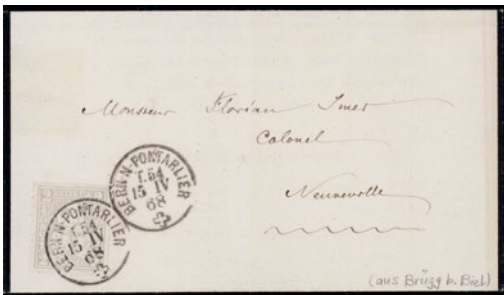 Monsieur Florian Imer
Colonel
Neuveville
BERN-N-PONTARLIER
T.54
15 IV
68
BERN-N-PONTARLIER
T.54
15 IV
68
(aus Brügg b. Biel)